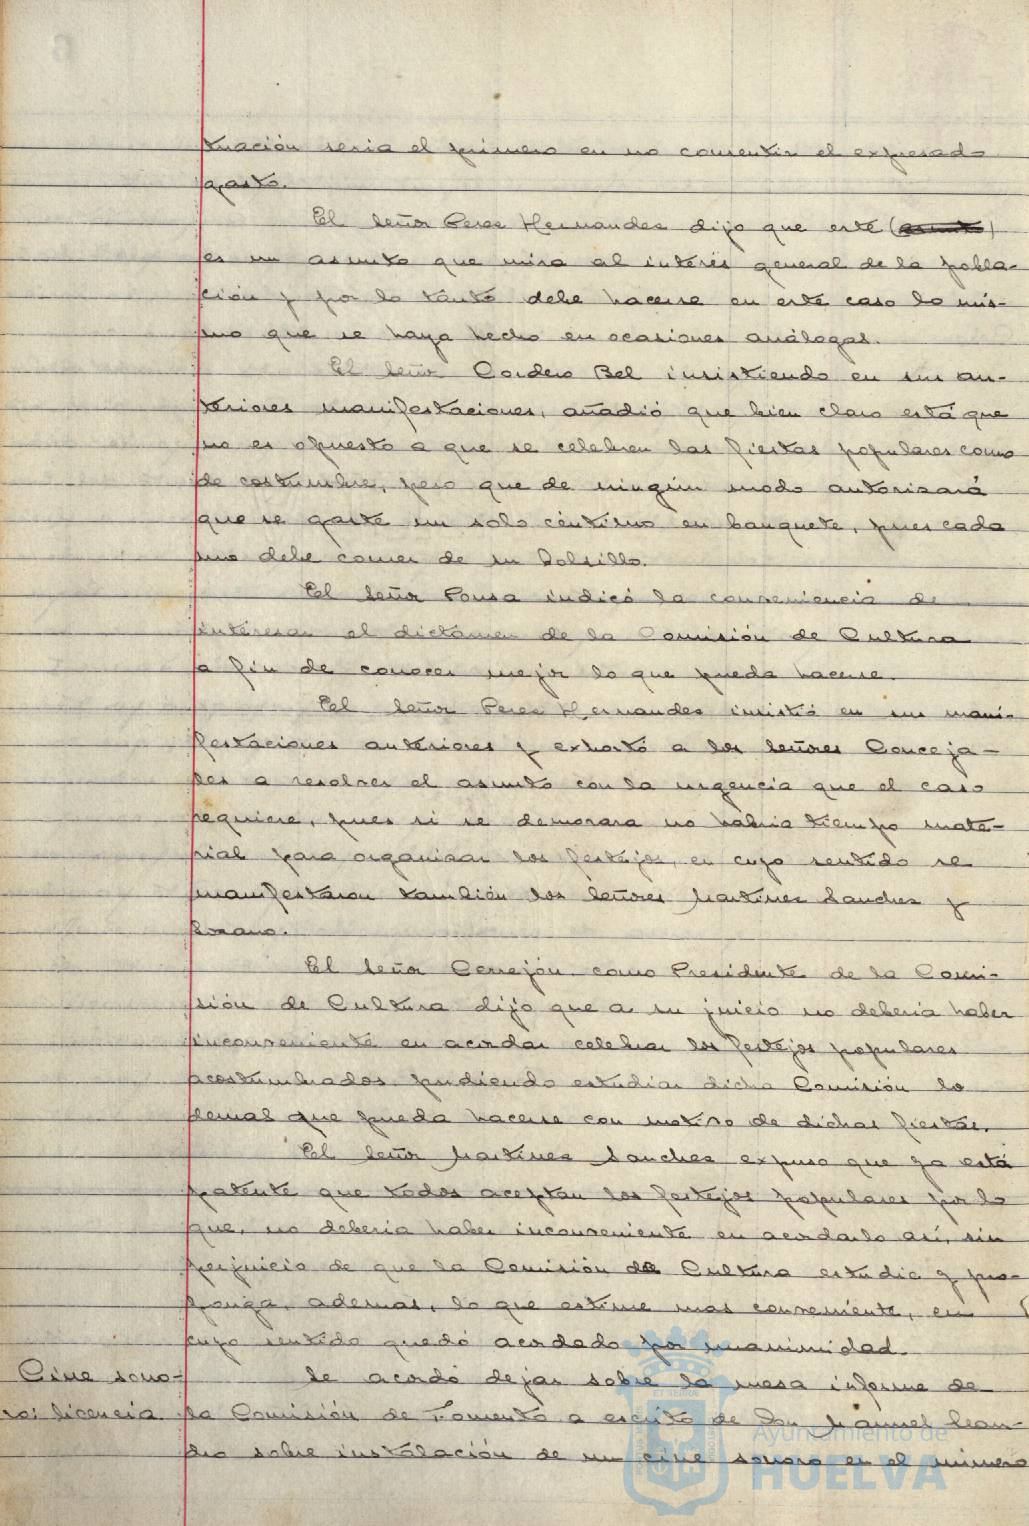 tuación seria el primero en no consentir el expresado
gasto.
El señor Perez Hernandez dijo que este (asunto)
es un asunto que mira al interés general de la pobla-
ción y por lo tanto debe hacerse en este caso lo mis-
mo que se haya hecho en ocasiones análogas.
El señor Cordero Bel insistiendo en sus an-
teriores manifestaciones, añadió que bien claro está que
no es opuesto a que se celebren las fiestas populares como
de costumbre, pero que de ningún modo autorizará
que se gaste un solo céntimo en banquete, pues cada
uno debe comer de su bolsillo.
El señor Pousa indicó la conveniencia de
interesar el dictámen de la Comisión de Cultura
a fin de conocer mejor lo que pueda hacerse.
El señor Perez Hernandez insistió en sus mani-
festaciones anteriores y exhortó a los señores Conceja-
les a resolver el asunto con la urgencia que el caso
requiere, pues si se demorara no habria tiempo mate-
rial para organizar los festejos, en cuyo sentido se
manifestaron también los señores Martinez Sanchez y
Lozano.
El señor Cerrejón como Presidente de la Comi-
sión de Cultura dijo que a su juicio no deberia haber
inconveniente en acordar celebrar los festejos populares
acostumbrados pudiendo estudiar dicha Comisión lo
demas que pueda hacerse con motivo de dichas fiestas.
El señor Martinez Sanchez expuso que ya está
patente que todos aceptan los festejos populares por lo
que, no deberia haber inconveniente en acordarlo así, sin
perjuicio de que la Comisión de Cultura estudie y pro-
ponga, ademas, lo que estime mas conveniente, en
cuyo sentido quedó acordado por unanimidad.
Cine sono-
ro: licencia.
Se acordó dejar sobre la mesa informe de
la Comisión de Fomento a escrito de Don Manuel Lean-
dro sobre instalación de un cine sonoro en el número
Ayuntamiento de
HUELVA